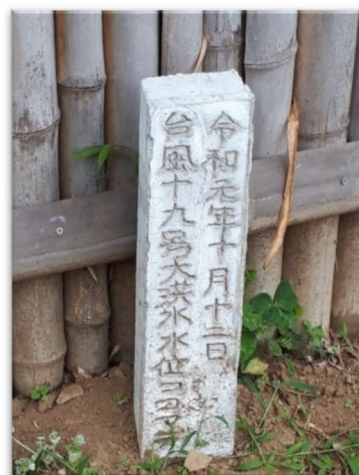 令和元年十月十二日
台風十九号大洪水水位ココ